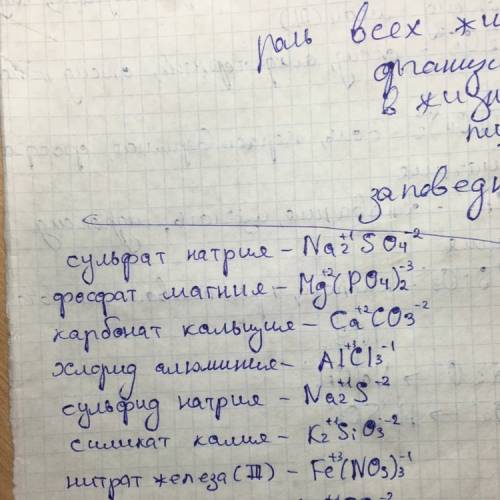 роль всех жи
в жизн
заповедн
сульфат натрия – Na₂⁺¹SO₄⁻²
фосфат магния – Mg⁺²(PO₄)₂⁻³
карбонат кальция – Ca⁺²CO₃⁻²
хлорид алюминия – Al⁺³Cl₃⁻¹
сульфид натрия – Na₂⁺¹S⁻²
силикат калия – K₂⁺¹SiO₃⁻²
нитрат железа (III) – Fe⁺³(NO₃)₃⁻¹